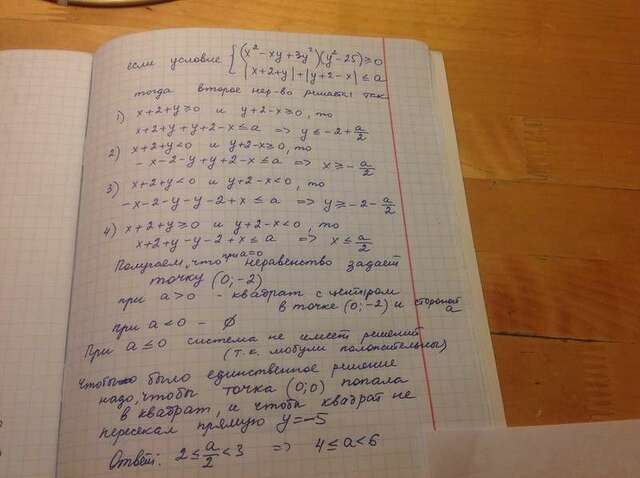 если условие { (x² - xy + 3y²)(y² - 25) ≥ 0
|x+2+y| + |y+2-x| ≤ a
тогда второе нер-во решать: так
1) x+2+y ≥ 0 и y+2-x ≥ 0, то
x+2+y+y+2-x ≤ a => y ≤ -2 + a/2
2) x+2+y < 0 и y+2-x ≥ 0, то
-x-2-y+y+2-x ≤ a => x ≥ -a/2
3) x+2+y < 0 и y+2-x < 0, то
-x-2-y-y-2+x ≤ a => y ≥ -2 - a/2
4) x+2+y ≥ 0 и y+2-x < 0, то
x+2+y-y-2+x ≤ a => x ≤ a/2
Получаем, что при a=0 неравенство задает
точку (0; -2)
при a > 0 - квадрат с центром
в точке (0; -2) и стороной a
при a < 0 - ∅
При a ≤ 0 система не имеет решений
(т.к. модули положительны)
Чтобы было единственное решение
надо, чтобы точка (0; 0) попала
в квадрат, и чтобы квадрат не
пересекал прямую y = -5
Ответ: 2 ≤ a/2 < 3 => 4 ≤ a < 6